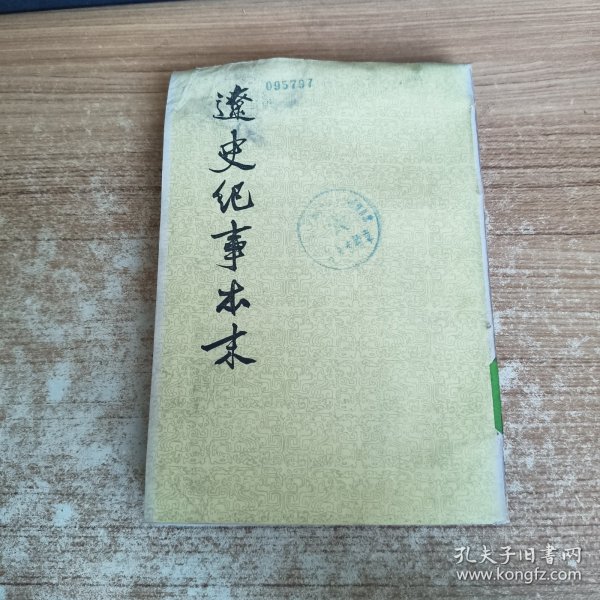 095797
遼史纪事本末
孔夫子旧書网
www.kongfz.com